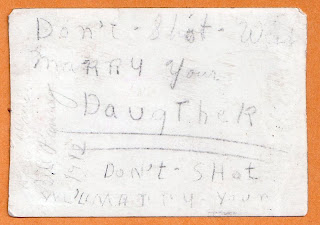 Don't - Shot - Will
MARRY Your
DaugTheR
DON'T - SHot
MARRY - Your
1912